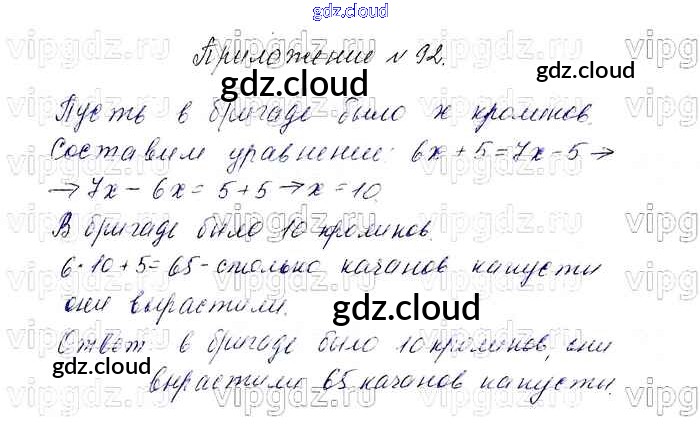 gdz.cloud
Приложение № 92.
Пусть в бригаде было x кроликов.
Составим уравнение: 6x + 5 = 7x - 5 →
→ 7x - 6x = 5 + 5 → x = 10.
В бригаде было 10 кроликов.
6·10+5=65 - столько качанов капусты
они вырастили.
Ответ: в бригаде было 10 кроликов, они
вырастили 65 качанов капусты.
gdz.cloud
gdz.cloud
gdz.cloud
gdz.cloud
vipgdz.ru